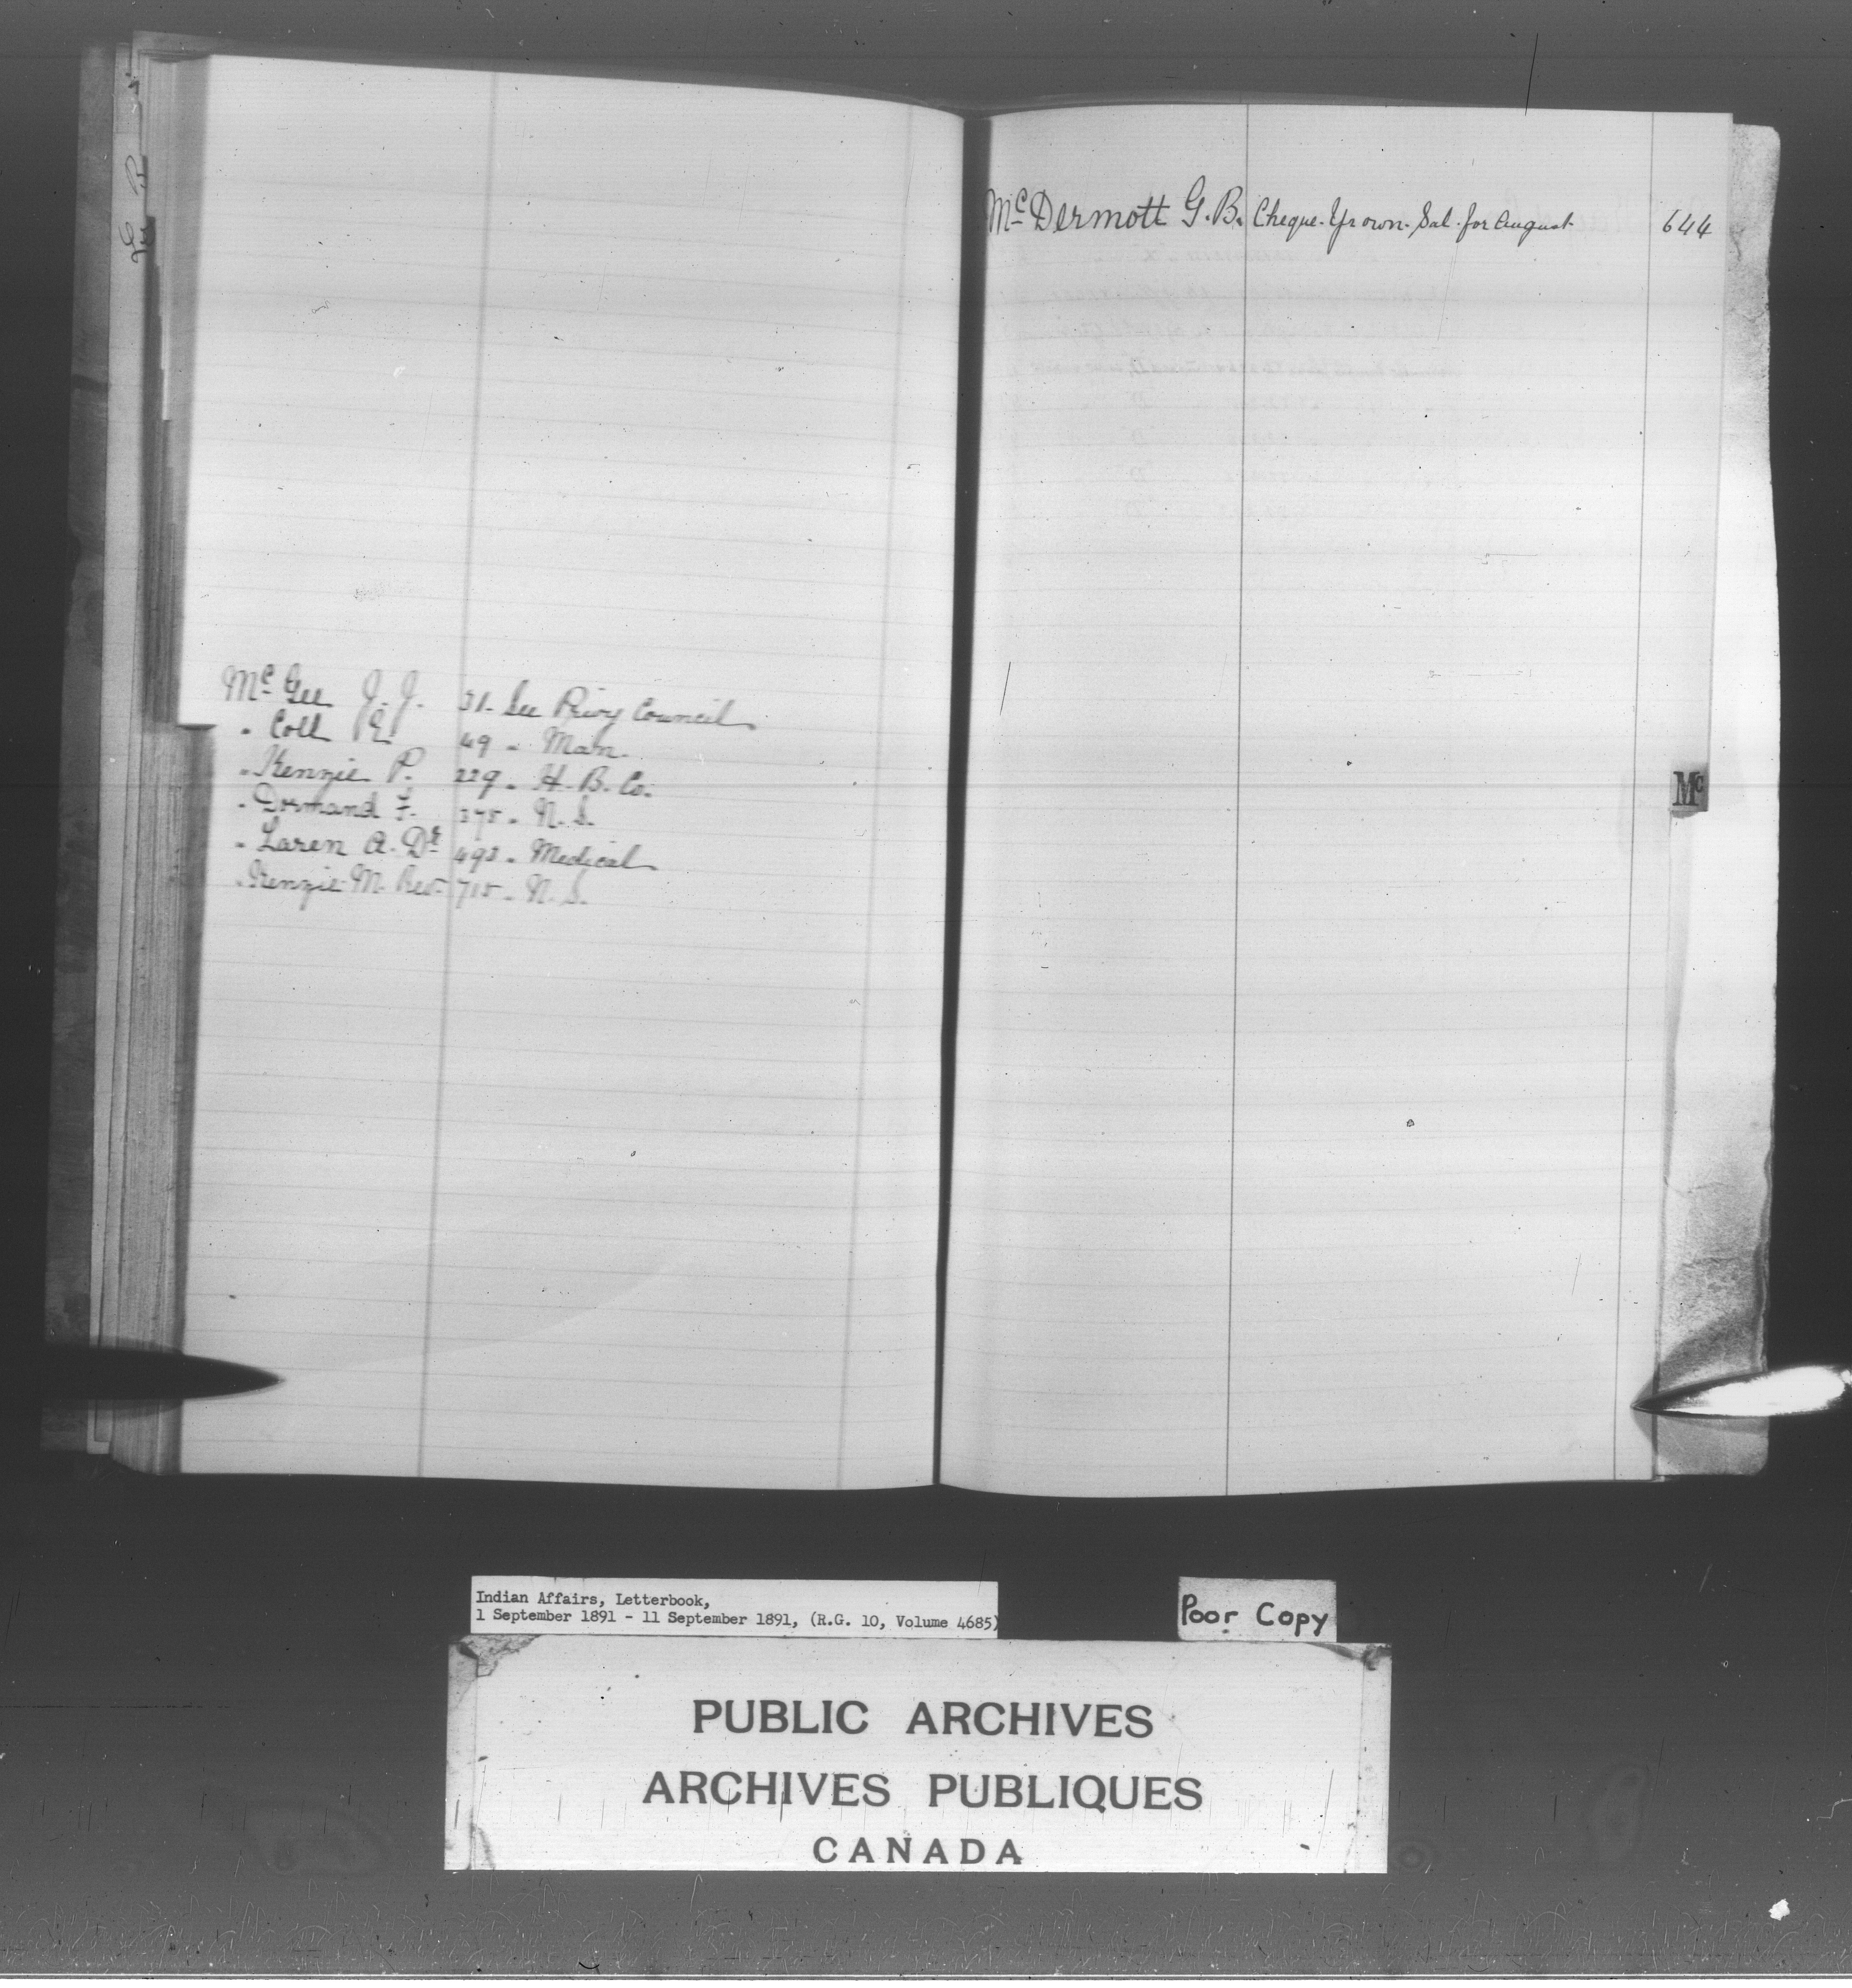 Mc Gee J. J. 31. See Privy Council
" Coll E. 49 " Man.
" Kenzie P. 229 " H. B. Co.
" Dormand F. 375 " N. S.
" Laren A. Dr 492 " Medical
" Kenzie M. Rev. 715 " N. S.
Mc Dermott G. B. Cheque. Yr own. Sal. for August 644
Mc
Indian Affairs, Letterbook,
1 September 1891 - 11 September 1891, (R.G. 10, Volume 4685)
Poor Copy
PUBLIC ARCHIVES
ARCHIVES PUBLIQUES
CANADA